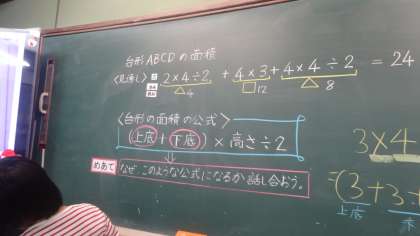 台形ABCDの面積
〈見通し〉 2×4÷2 + 4×3 + 4×4÷2 = 24
△4 □12 △8
〈台形の面積の公式〉
(上底+下底)×高さ÷2
めあて なぜ、このような公式になるか話し合おう。
3×4
=(3+3+
上底